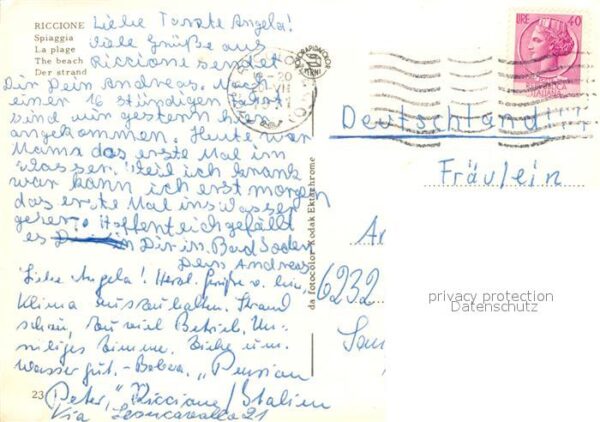 RICCIONE
Spiaggia
La plage
The beach
Der strand
Liebe Tante Angela!
Viele Grüße aus
Riccione sendet
Dir Dein Andreas. Nach
einer 16 stündigen Fahrt
sind wir gestern hier
angekommen. Heute war
Mama das erste Mal im
Wasser. Weil ich krank
war kann ich erst morgen
das erste Mal ins Wasser
gehen. Hoffentlich gefällt
es Dir in Bad Soden
Dein Andreas
Liebe Angela! Herzl. Grüße
Klima auszuhalten. Strand
schön, zu viel Betrieb.
Zimmer.
Wasser gut. - "Pension
Peter," Riccione/Italien
Via Leoncavallo 21
23
da fotocolor Kodak Ektachrome
LIRE 40
Deutschland
Fräulein
An
6232
privacy protection
Datenschutz